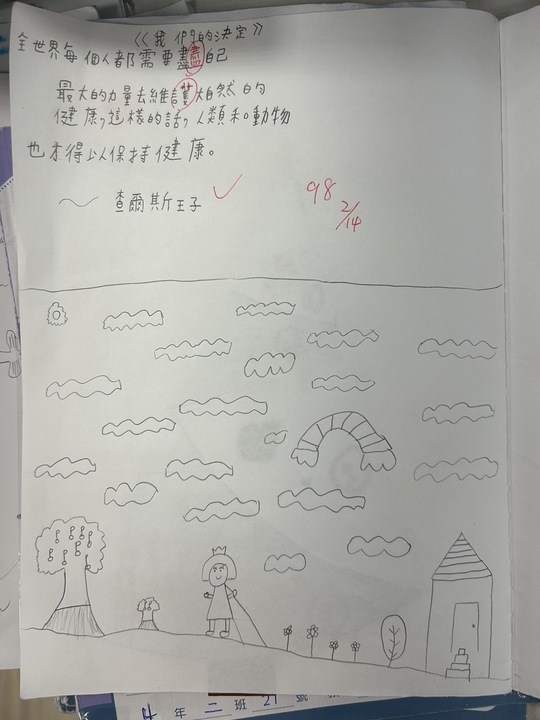 《我們的決定》
全世界每個人都需要盡自己
最大的力量去維護大自然的
健康,這樣的話,人類和動物
也才得以保持健康。
～ 查爾斯王子
98
2/14
年二班27號